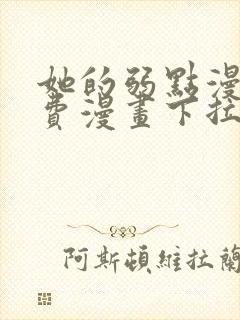 她的弱點漫
費漫畫下拉
阿斯頓維拉蘭